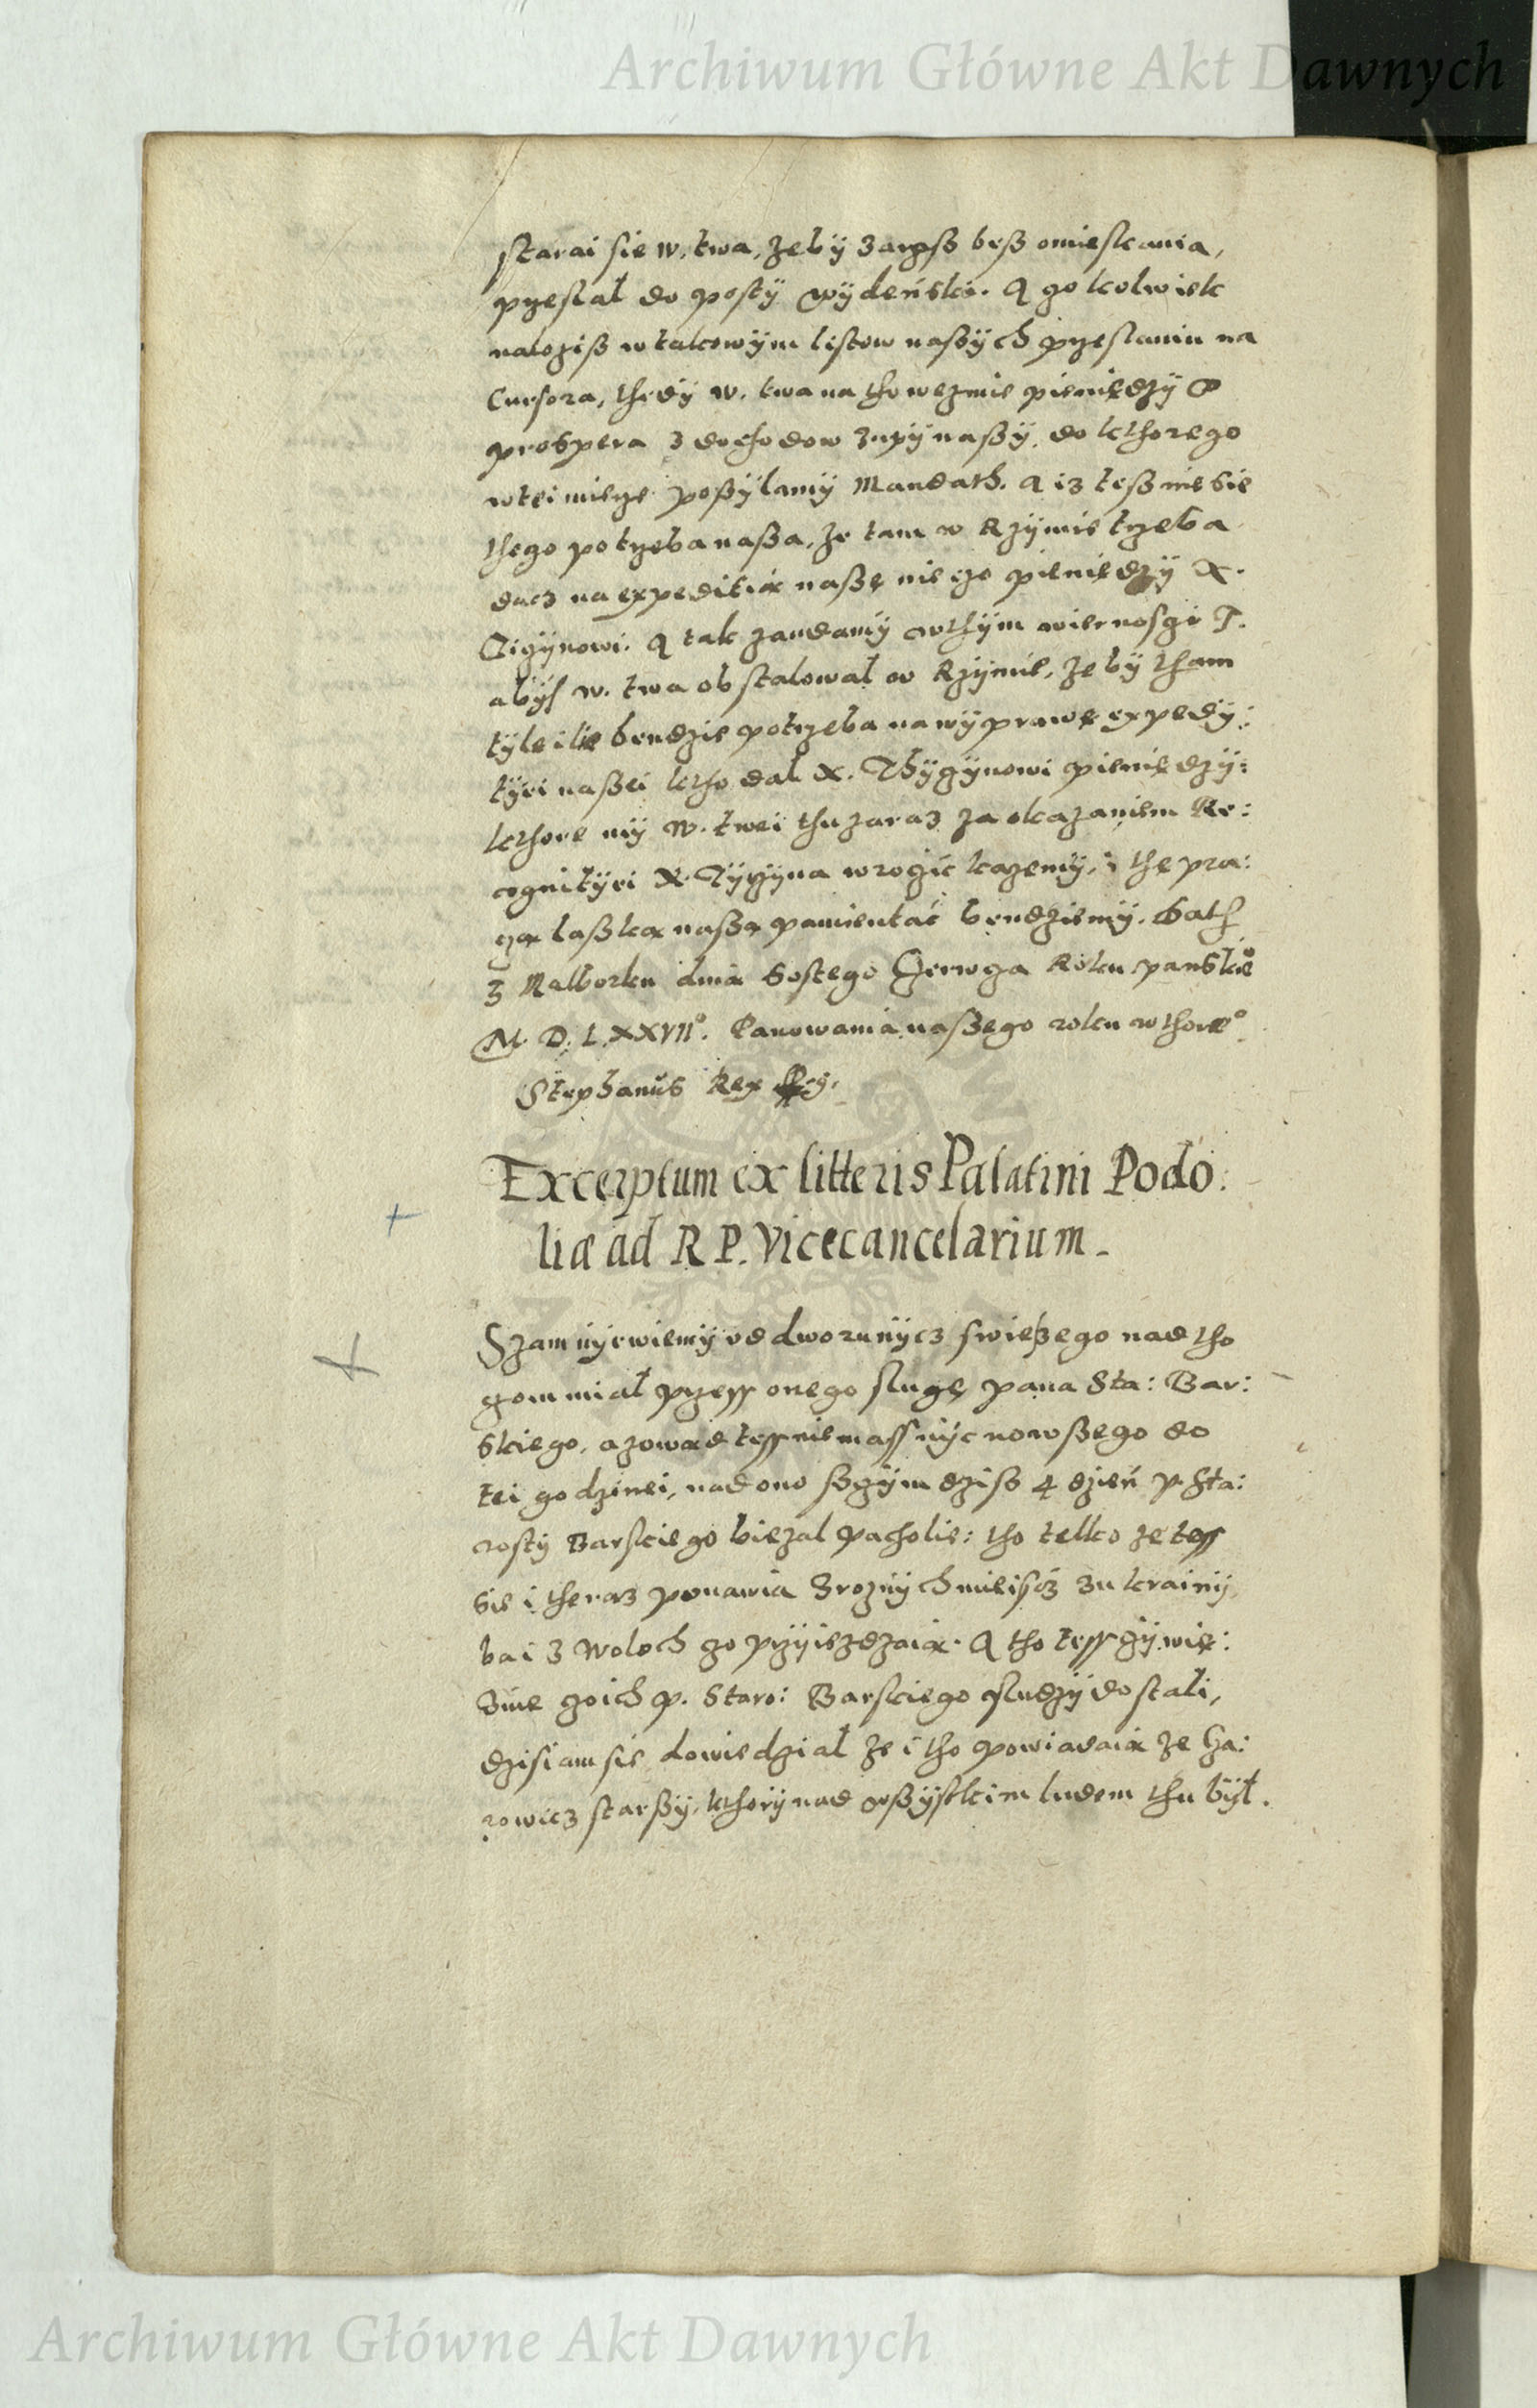 Archiwum Główne Akt Dawnych
starai sie w. twa, zeby zarasz besz omieskania,
przeslał do posty wydeński. A czo kolwiek
nalozisz w takowym listow naszych przeslaniu na
Cursora, thedy w. twa na tho wezmie pieniędzy o
prospera z dochodow zupy naszy, do kthorego
w tei mierze posylamy Mandath. A iz tesz niesie
thego potrzeba nasza, ze tam w Rzymie trzeba
dacz na expeditią naszę nieczo pieniędzy X.
Ticzynowi. A tak zandamy w thym wiernosczi T.
abys w. twa obstalował w Rzymie, ze by tham
tyle ile bendzie potrzeba na wyprawę expedy:
tyei naszei ktho dal X. Thyczynowi pieniędzy:
kthore my w. twei thu zaraz za okazaniem Re:
cognityei X. Tyczyna wroczić kazemy, i thę pra:
czą laską naszą pamientać bendziemy. Dath
z Malborku dnia szostego Czerwcza Roku panskieº
M. D. LXXVIIº. Panowania naszego roku wthoreº
Stephanus Rex
Excerptum ex litteris Palatini Podo:
liæ ad R P. Vicecancelarium.
Szam nyewiemy od dworu nycz swieżego nad tho
czom miał przess onego slugę pana Sta: Bar:
skiego, a zowąd tess niemass nyc nowszego do
tei godzinei, nad ono sczym dzisz 4 dzień p. Sta:
rosty Barskiego biezal pacholie: tho telko ze tess
sie i theraz ponawia z roznych mieiscz z ukrainy
ba i z Woloch czo przyiezdzaią. A tho tess czy wię:
znie czo ich p. Staro: Barskiego sludzy dostali,
dzisiam sie dowiedział ze i tho powiadaią ze Ha:
rowicz starszy, kthory nad wszystkim ludem thu był.
Archiwum Główne Akt Dawnych